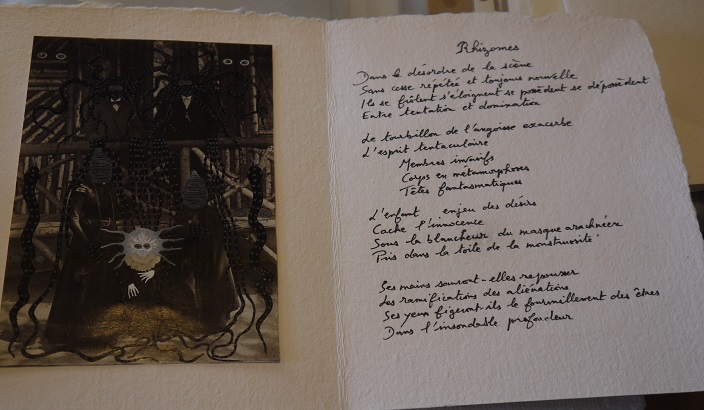 Rhizomes
Dans le désordre de la scène
Sans cesse répétée et toujours nouvelle
Ils se frôlent s'éloignent se possèdent se dépossèdent
Entre tentation et domination
Le tourbillon de l'angoisse exacerbe
L'esprit tentaculaire
Membres invasifs
Corps en métamorphoses
Têtes fantasmatiques
L'enfant enjeu des désirs
Cache l'innocence
Sous la blancheur du masque arachnéen
Pris dans la toile de la monstruosité
Ses mains sauront-elles repousser
Les ramifications des aliénations
Ses yeux figeront-ils le fourmillement des êtres
Dans l'insondable profondeur